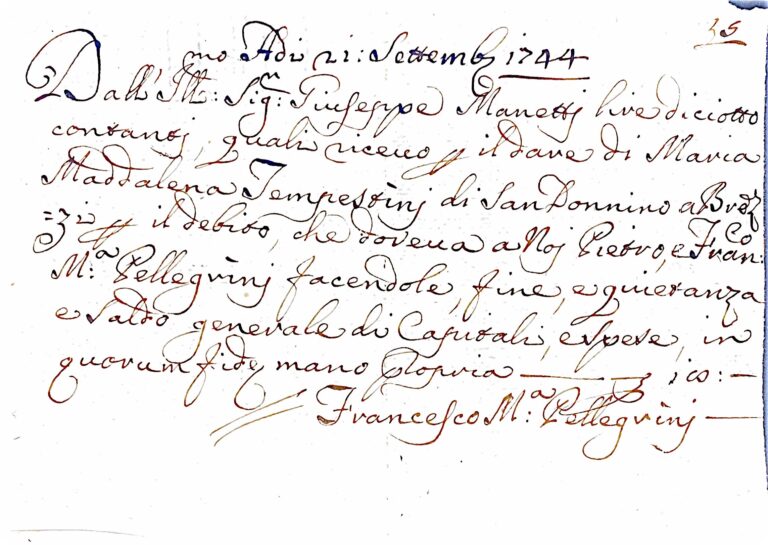 15
Adi 21: Settemb 1744
Dall' Ill:mo Sig:r Giuseppe Manettj lire diciotto
contantj, quali riceuo p il dare di Maria
Maddalena Tempestinj di San Donnino a Broz
=zi p il debito, che doveua a Noj Pietro, e Fran:co
M:a Pellegrinj facendole, fine, e quietanza
e saldo generale di Capitali, e spese, in
quorum fidej mano Propria —
Francesco M:a Pellegrinj —